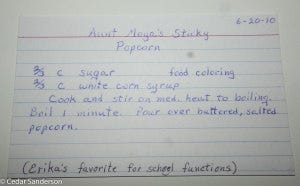 6-20-10
Aunt Maya's Sticky
Popcorn
⅔ c sugar food coloring
⅔ c white corn syrup
Cook and stir on med. heat to boiling.
Boil 1 minute. Pour over buttered, salted
popcorn.
(Erika's favorite for school functions)
© Cedar Sanderson